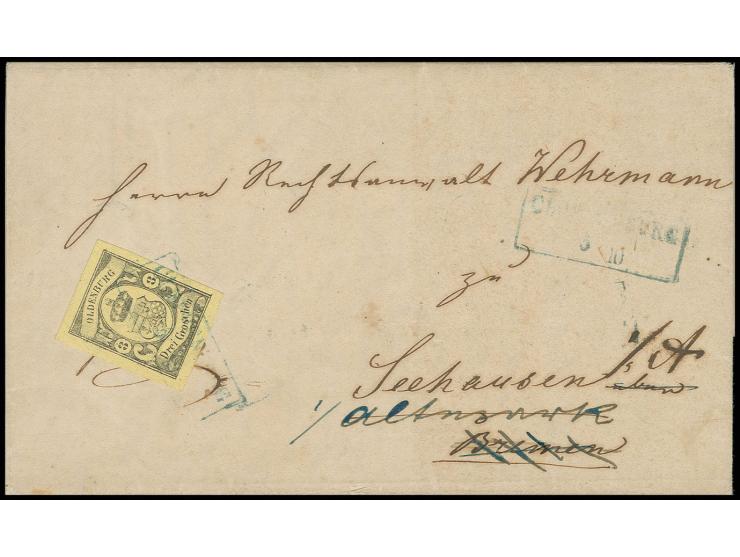 Herrn Rechtsanwalt Wehrmann
zu
Seehausen i/A
i/ Altmark
Bremen
OLDENBURG
3
3
Drei Groschen
OLDENBURG